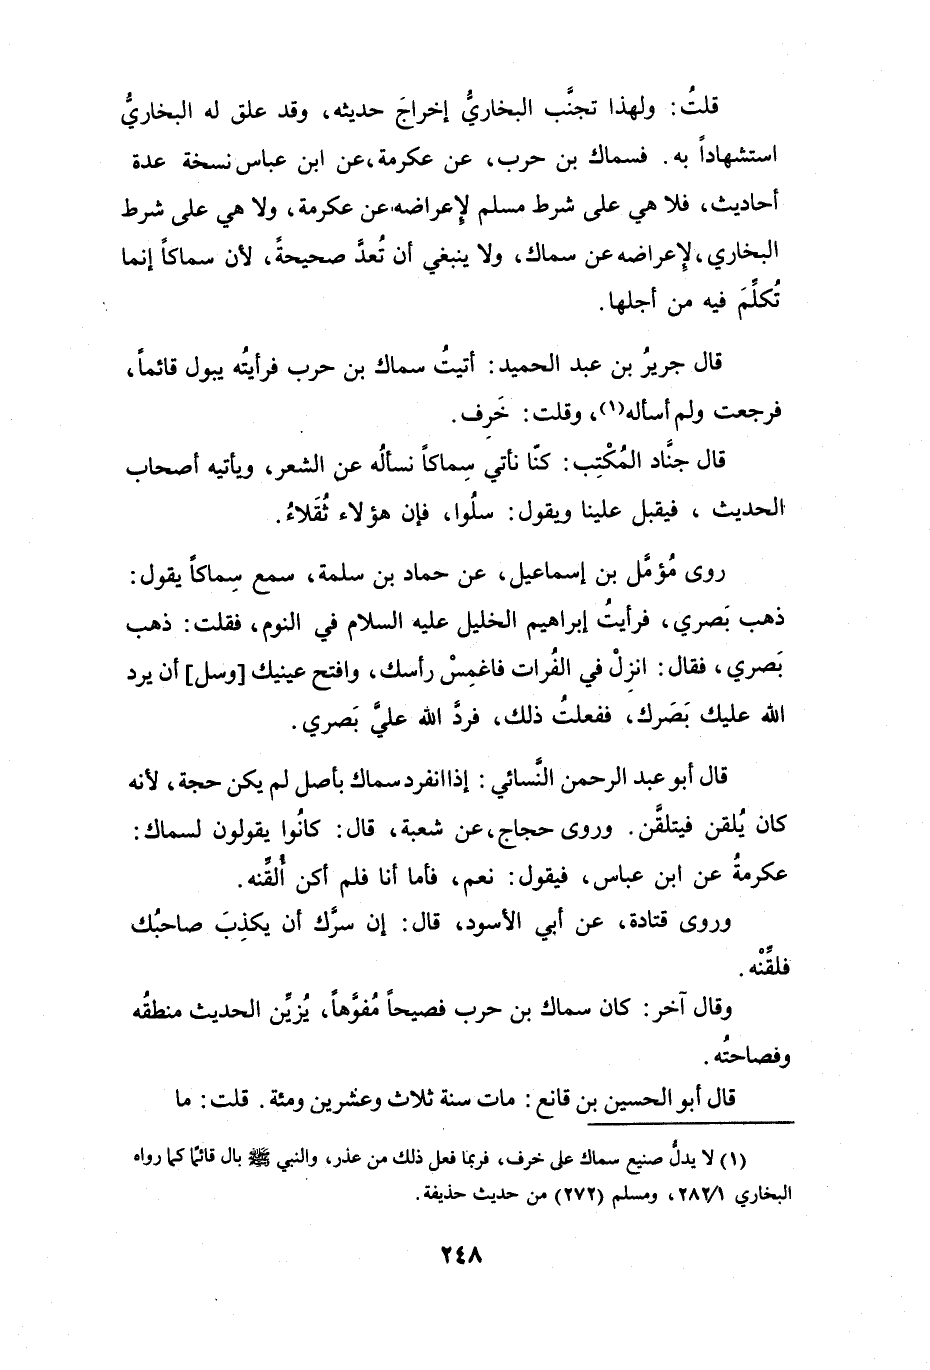 قلتُ: ولهذا تجنَّب البخاريُّ إخراجَ حديثه، وقد علق له البخاريُّ
استشهاداً به. فسماك بن حرب، عن عكرمة، عن ابن عباس نسخة عدة
أحاديث، فلا هي على شرط مسلم لإعراضه عن عكرمة، ولا هي على شرط
البخاري، لإعراضه عن سماك، ولا ينبغي أن تُعدَّ صحيحةً، لأن سماكاً إنما
تُكلِّمَ فيه من أجلها.
قال جريرُ بن عبد الحميد: أتيتُ سماك بن حرب فرأيتُه يبول قائماً،
فرجعت ولم أسأله(١)، وقلت: خَرِف.
قال جنَّاد المُكْتِب: كنّا نأتي سِماكاً نسألُه عن الشعر، ويأتيه أصحاب
الحديث ، فيقبل علينا ويقول: سلُوا، فإن هؤلاء ثُقَلاءُ.
روى مُؤمَّل بن إسماعيل، عن حماد بن سلمة، سمع سِماكاً يقول:
ذهب بَصري، فرأيتُ إبراهيم الخليل عليه السلام في النوم، فقلت: ذهب
بَصري، فقال: انزِلْ في الفُرات فاغمِسْ رأسك، وافتح عينيك [وسل] أن يرد
الله عليك بَصَرك، ففعلتُ ذلك، فردَّ الله عليَّ بَصري.
قال أبو عبد الرحمن النَّسائي: إذا انفرد سماك بأصل لم يكن حجة، لأنه
كان يُلقن فيتلقَّن. وروى حجاج، عن شعبة، قال: كانُوا يقولون لسماك:
عكرمةُ عن ابن عباس، فيقول: نعم، فأما أنا فلم أكن أُلقِّنه.
وروى قتادة، عن أبي الأسود، قال: إن سرَّك أن يكذِبَ صاحبُك
فلقِّنْه.
وقال آخر: كان سماك بن حرب فصيحاً مُفوَّهاً، يُزيِّن الحديث منطقُه
وفصاحتُه.
قال أبو الحسين بن قانع: مات سنة ثلاث وعشرين ومئة. قلت: ما
(١) لا يدلُّ صنيع سماك على خرف، فربما فعل ذلك من عذر، والنبي ﷺ بال قائمًا كما رواه
البخاري ٢٨٢/١، ومسلم (٢٧٢) من حديث حذيفة.
٢٤٨